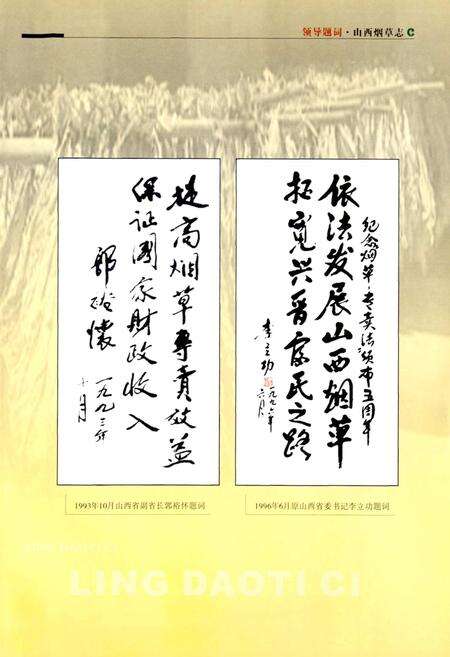 领导题词·山西烟草志 C
纪念烟草专卖法颁布五周年
依法发展山西烟草
拓宽兴晋富民之路
李立功
一九九六年
六月
提高烟草专卖效益
保证国家财政收入
郭裕怀
一九九三年
十月
1993年10月山西省副省长郭裕怀题词
1996年6月原山西省委书记李立功题词
LING DAOTI CI
LING DAOTI CI